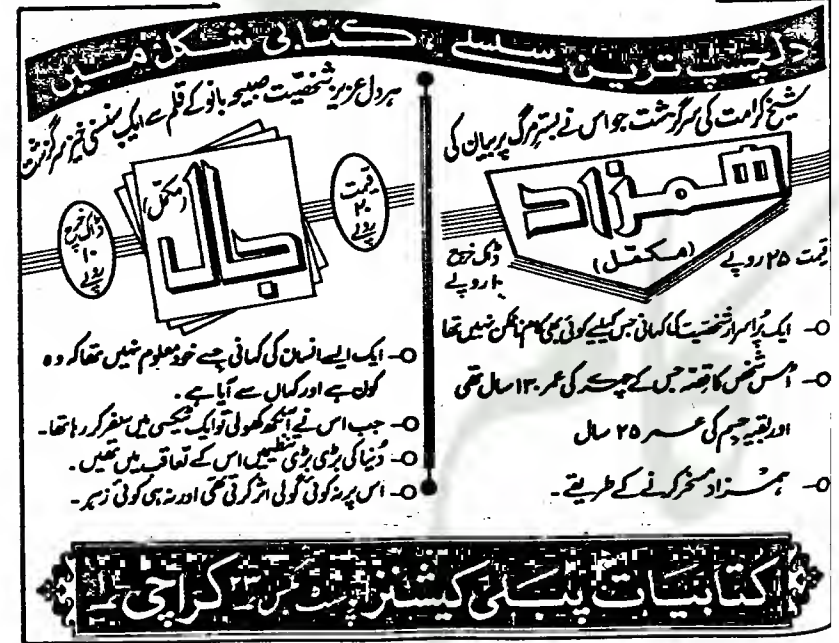 دلچسپ ترین سلسلے کتابی شکل میں
شیخ کرامت کی سرگزشت جو اس نے بسترِ مرگ پر بیان کی
ھمزاد
(مکمّل)
قیمت ۲۵ روپے
ڈاک خرچ
۱۰ روپے
ایک پُراسرار شخصیت کی کہانی جس کیلیے کوئی بھی کام ناممکن نہیں تھا
اُس شخص کا قصّہ جس کے چہرے کی عمر ۱۳۰ سال تھی
اور بقیہ جسم کی عمر ۲۵ سال
ہمزاد مسخر کرنے کے طریقے۔
ہر دل عزیز شخصیت صبیحہ بانو کے قلم سے ایک سنسنی خیز سرگزشت
جال
(مکمل)
قیمت
۲۰
روپے
ڈاک خرچ
۱۰
روپے
ایک ایسے انسان کی کہانی جسے خود معلوم نہیں تھا کہ وہ
کون ہے اور کہاں سے آیا ہے۔
جب اس نے آنکھ کھولی تو ایک ٹیکسی میں سفر کر رہا تھا۔
دُنیا کی بڑی بڑی تنظیمیں اس کے تعاقب میں تھیں۔
اس پر نہ کوئی گولی اثر کرتی تھی اور نہ ہی کوئی زہر۔
کتابیات پبلی کیشنز پوسٹ بکس ۲۳ کراچی ۱